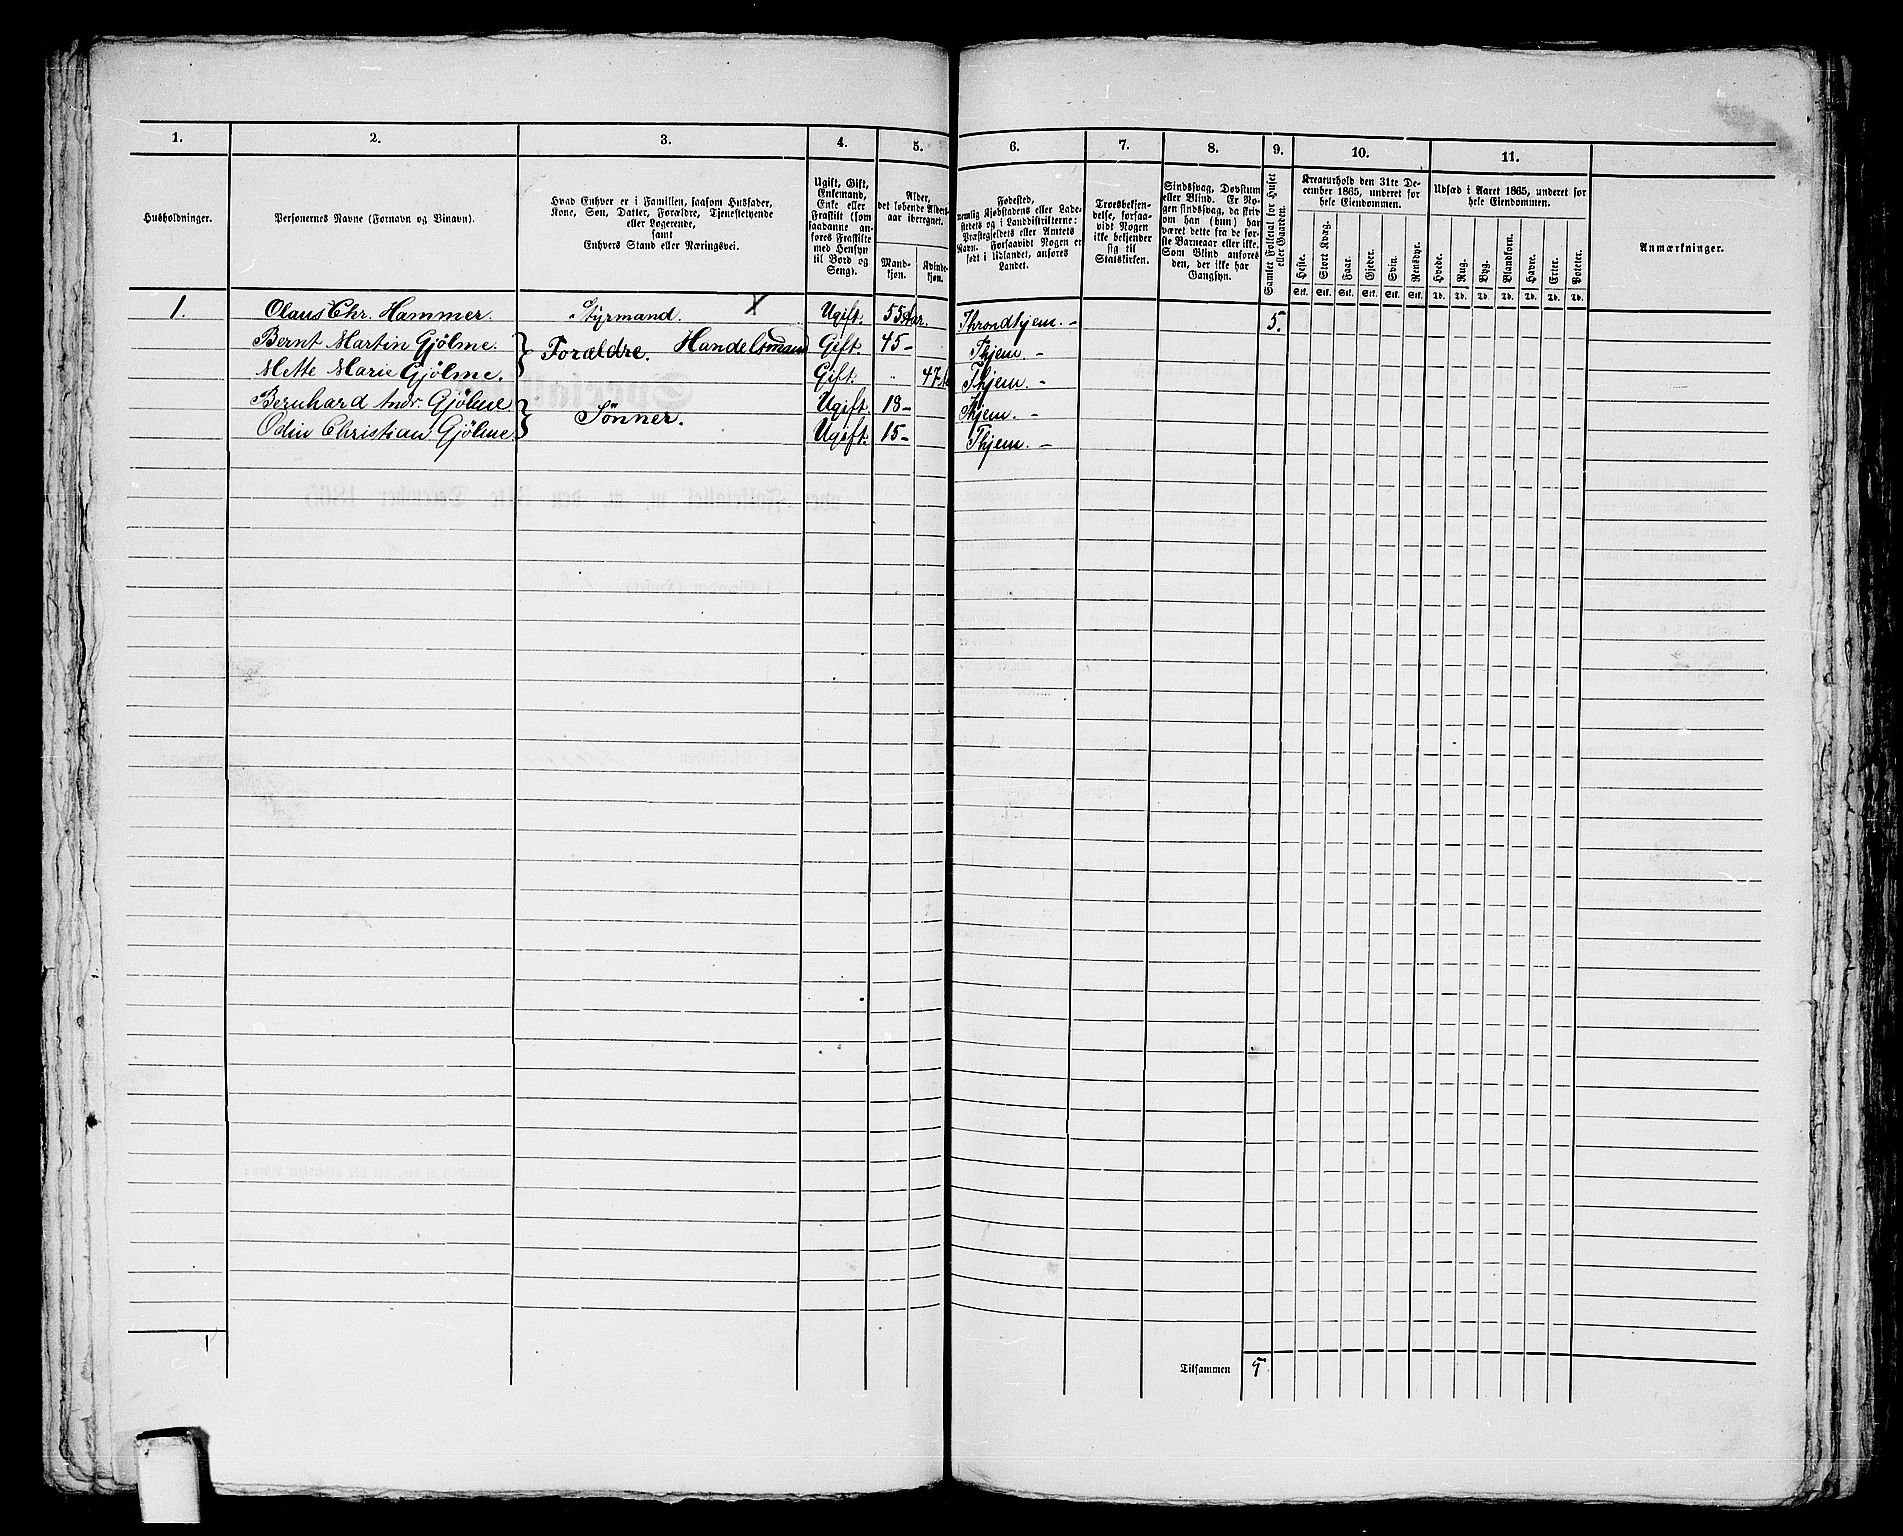 1. 2. 3. 4. 5. 6. 7. 8. 9. 10. 11.
Husholdninger.
Personernes Navne (Fornavn og Binavn).
Hvad Enhver er i Familien, saasom Husfader,
Kone, Søn, Datter, Forældre, Tjenestetyende
eller Logerende,
samt
Enhvers Stand eller Næringsvei.
Ugift, Gift,
Enkemand,
Enke eller
Fraskilt (som
saadanne an-
føres Fraskilte
med Hensyn
til Bord og
Seng).
Alder,
det løbende Alders-
aar iberegnet.
Mand-
kjøn.
Kvinde-
kjøn.
Fødested,
nemlig Kjøbstadens eller Lade-
stedets og i Landdistrikterne:
Præstegjeldets eller Amtets
Navn. Forsaavidt Nogen er
født i Udlandet, anføres
Landet.
Troesbekjen-
delse, forsaa-
vidt Nogen
ikke bekjender
sig til
Statskirken.
Sindssvag, Døvstum
eller Blind. Er No-
gen sindssvag, da skriv
om han (hun) har
været dette fra de før-
ste Barneaar eller ikke.
Som Blind anføres
den, der ikke har
Gangsyn.
Samlet Folketal for Huset
eller Gaarden.
Kreaturhold den 31te De-
cember 1865, underet for
hele Eiendommen.
Heste. Stort Kvæg. Faar. Gjeder. Svin. Rensdyr.
Stk. Stk. Stk. Stk. Stk. Stk.
Udsæd i Aaret 1865, underet for
hele Eiendommen.
Hvede. Rug. Byg. Blandkorn. Havre. Erter. Poteter.
Td. Td. Td. Td. Td. Td. Td.
Anmærkninger.
1. Olaus Chr. Hammer. Styrmand. X Ugift. 55 Aar. Throndhjem. – 5.
Bernt Martin Gjølme. } Forældre. Handelsmand Gift. 45 – Thjem. –
Mette Marie Gjølme. Gift. .. 47 Thjem. –
Bernhard Andr. Gjølme } Sønner. Ugift. 18 – Thjem. –
Odin Christian Gjølme Ugift. 15 – Thjem. –
1
Tilsammen 5